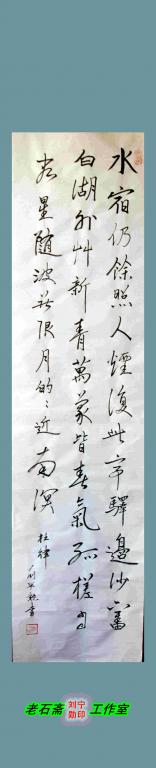 水宿仍餘照人煙復此亭驛邊沙舊
白湖外艸新青萬象皆春氣孤槎自
客星隨波無限月的々近南溟
杜律
刘宁勋書
老石斋 刘宁勋印 工作室